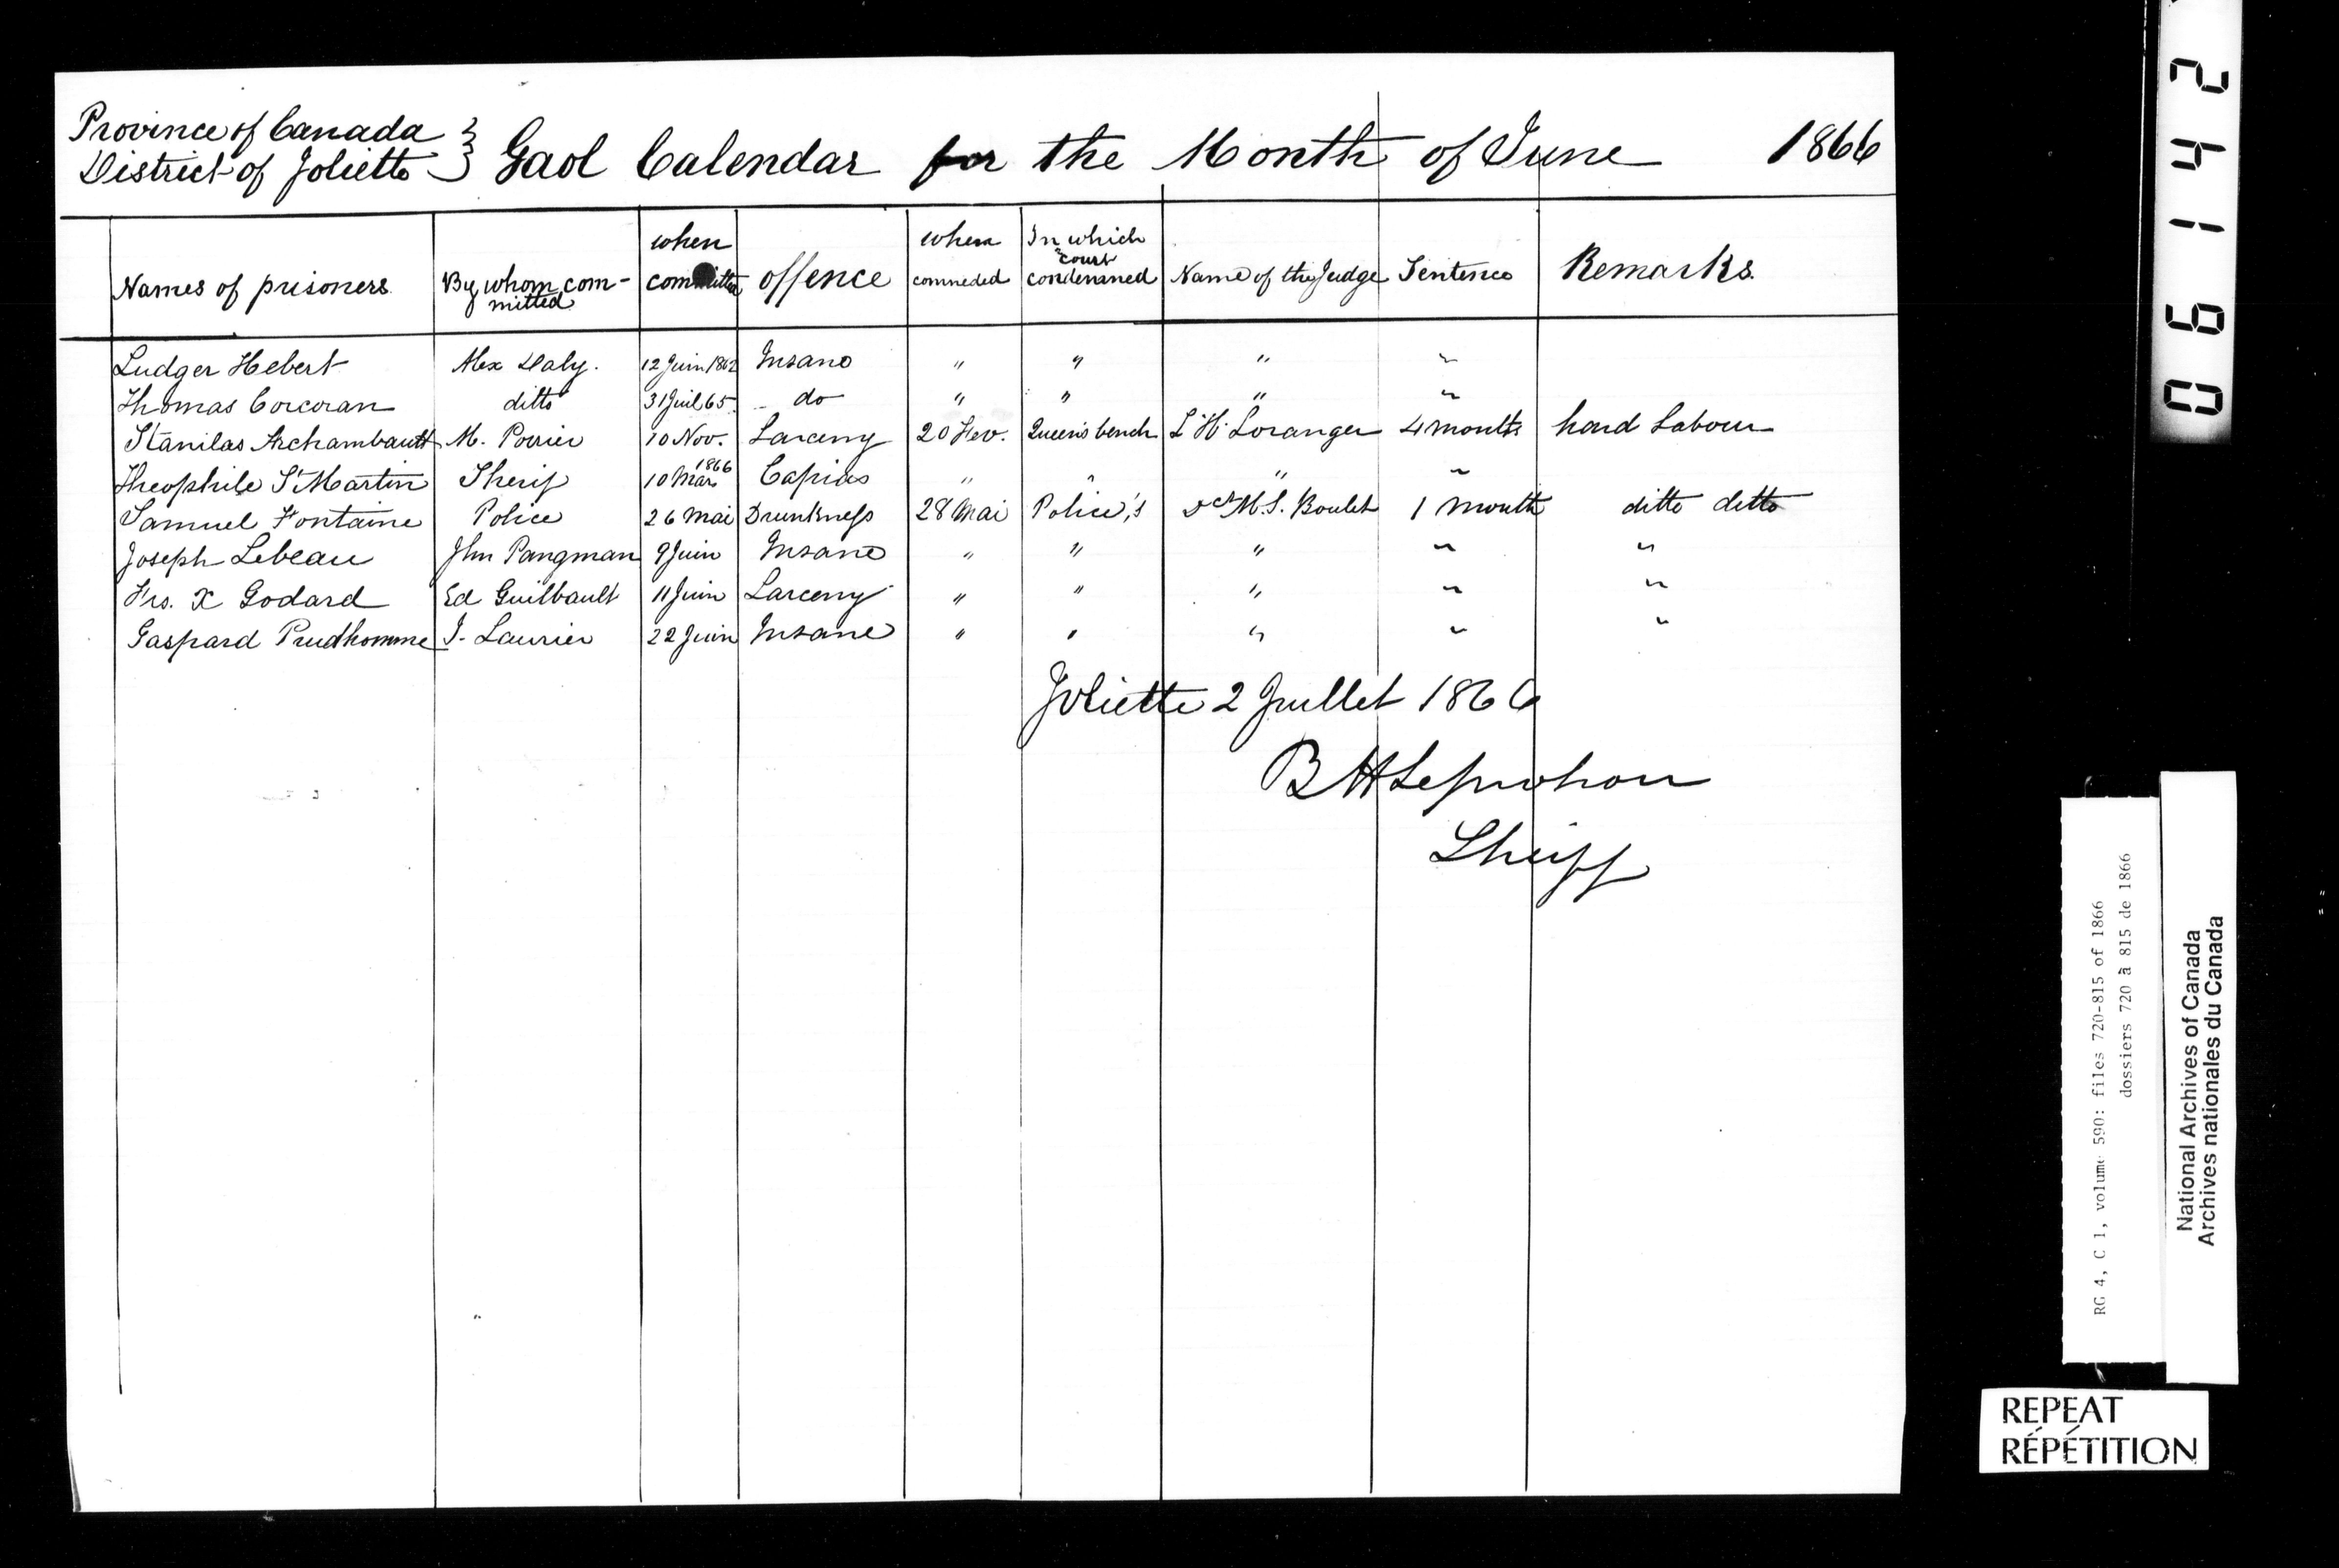 Province of Canada
District of Joliette } Gaol Calendar for the Month of June 1866
Names of prisoners | By whom committed | when committed | offence | when comneded | In which court condemned | Name of the Judge | Sentence | Remarks.
Ludger Hebert | Alex Daly. | 12 Juin 1862 | Insane | " | " | " | "
Thomas Corcoran | ditto | 31 Juil 65. | do | " | " | " | "
Stanilas Archambault | M. Poirier | 10 Nov. | Larceny | 20 Fev. | Queen's bench | L H Loranger | 4 months | hard Labour
Theophile St Martin | Sherif | 10 Mars 1866 | Capias | " | " | " | "
Samuel Fontaine | Police | 26 Mai | Drunkness | 28 Mai | Police's | Dr M. S. Boulet | 1 Month | ditto ditto
Joseph Lebeau | Jhn Pangman | 9 Juin | Insane | " | " | " | " | "
Frs. X Godard | Ed Guilbault | 11 Juin | Larceny | " | " | " | " | "
Gaspard Prudhomme | J. Laurier | 22 Juin | Insane | " | " | " | " | "
Joliette 2 Juillet 1866
B H Leprohon
Sheriff
06142
RG 4, C 1, volume 590: files 720-815 of 1866
dossiers 720 à 815 de 1866
National Archives of Canada
Archives nationales du Canada
REPEAT
RÉPÉTITION